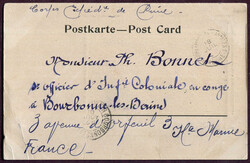 Corps Expédre de Chine
Postkarte—Post Card
Monsieur Ph. Bonnet
s officier d'Infie Coloniale en congé
à Bourbonne-les-Bains
3 avenue d'orfeuil 3 Hte Marne
France